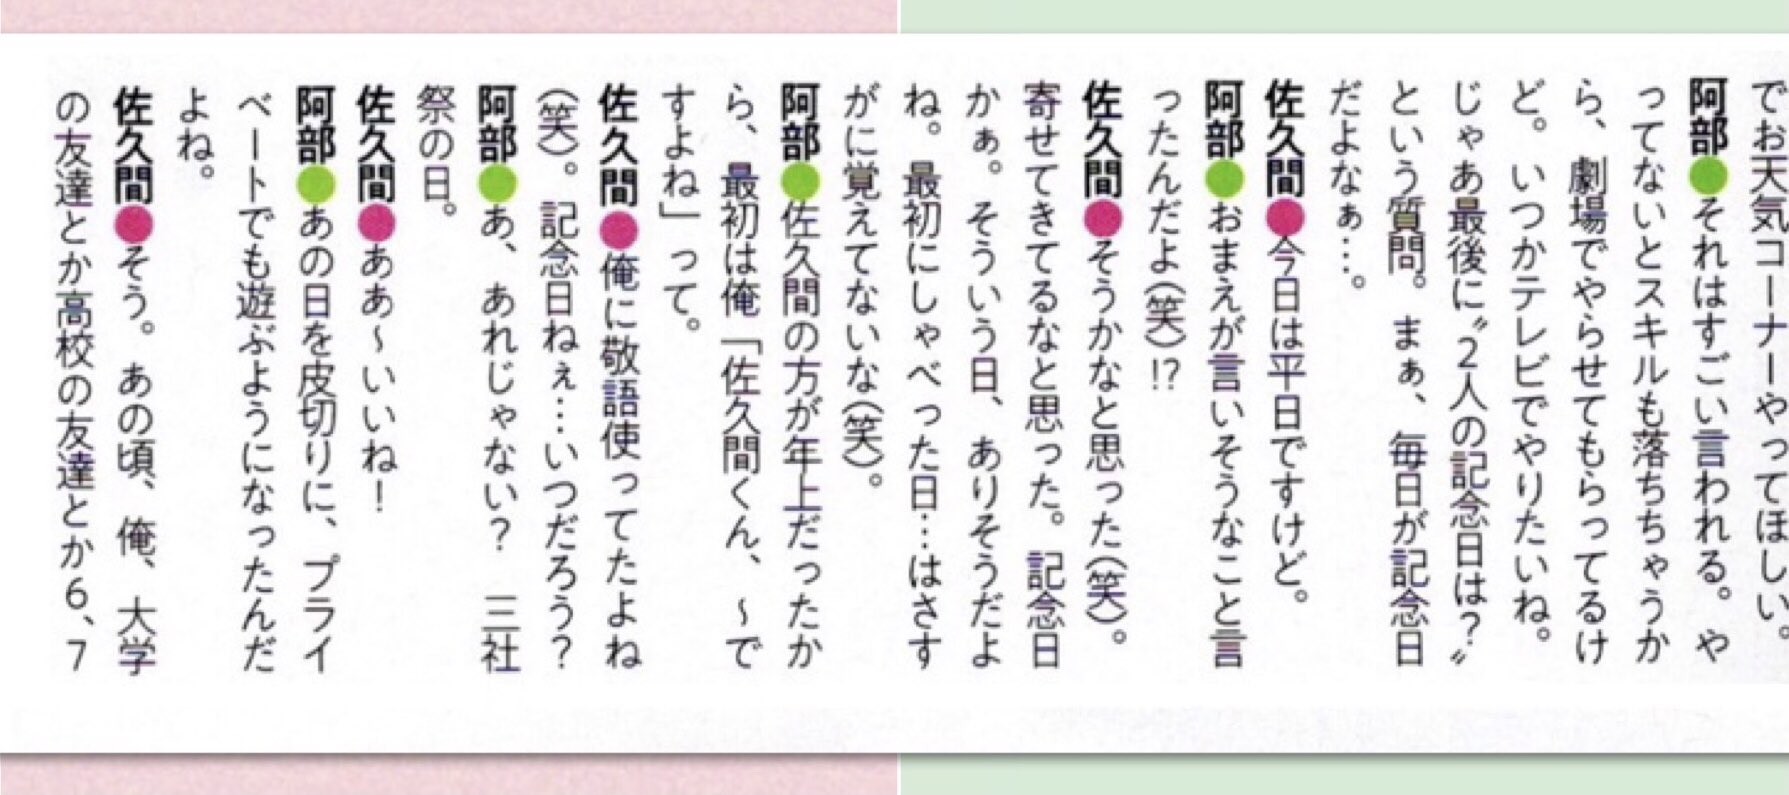 でお天気コーナーやってほしい。
阿部●それはすごい言われる。や
ってないとスキルも落ちちゃうか
ら、劇場でやらせてもらってるけ
ど。いつかテレビでやりたいね。
じゃあ最後に〝2人の記念日は？〟
という質問。まぁ、毎日が記念日
だよなぁ…。
佐久間●今日は平日ですけど。
阿部●おまえが言いそうなこと言
ったんだよ(笑)!?
佐久間●そうかなと思った(笑)。
寄せてきてるなと思った。記念日
かぁ。そういう日、ありそうだよ
ね。最初にしゃべった日…はさす
がに覚えてないな(笑)。
阿部●佐久間の方が年上だったか
ら、最初は俺「佐久間くん、～で
すよね」って。
佐久間●俺に敬語使ってたよね
(笑)。記念日ねぇ…いつだろう？
阿部●あ、あれじゃない？　三社
祭の日。
佐久間●ああ～いいね！
阿部●あの日を皮切りに、プライ
ベートでも遊ぶようになったんだ
よね。
佐久間●そう。あの頃、俺、大学
の友達とか高校の友達とか6、7